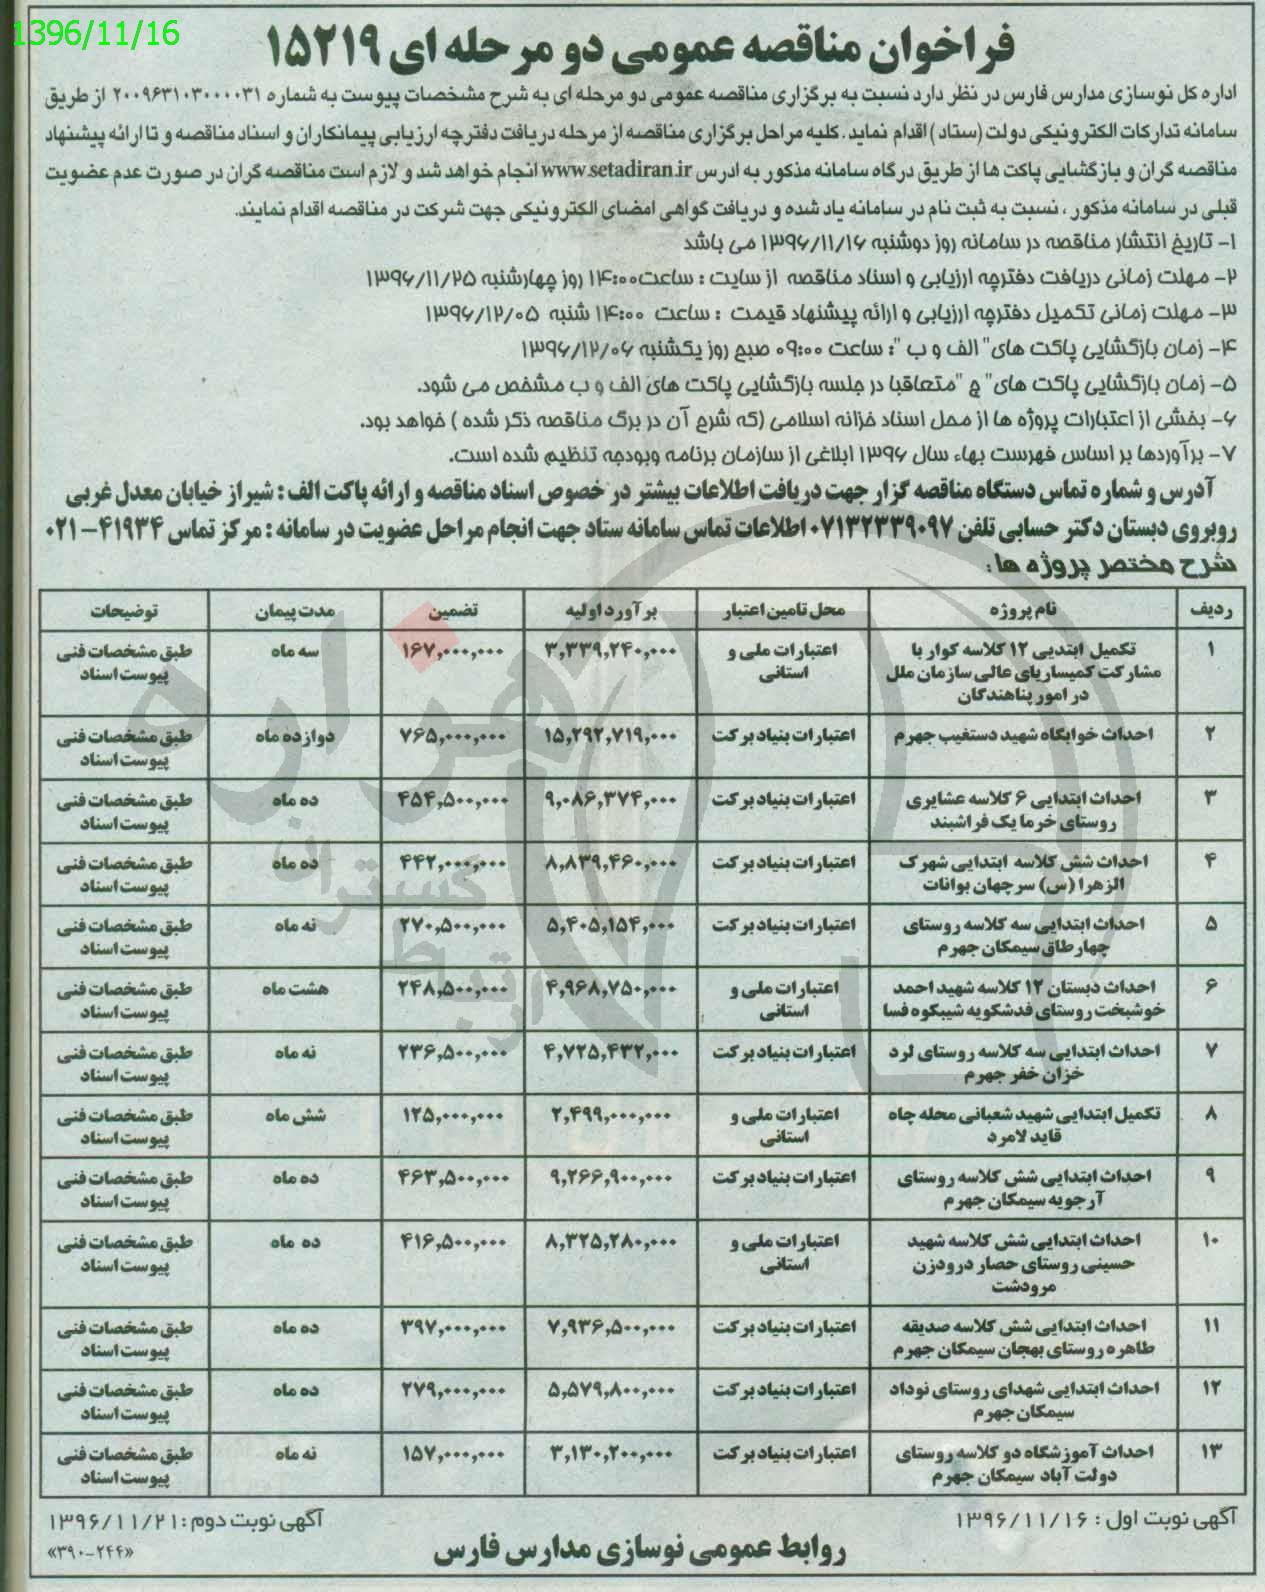 1396/11/16
فراخوان مناقصه عمومی دو مرحله ای ۱۵۲۱۹
اداره کل نوسازی مدارس فارس در نظر دارد نسبت به برگزاری مناقصه عمومی دو مرحله ای به شرح مشخصات پیوست به شماره ۲۰۰۹۶۳۱۰۳۰۰۰۰۳۱ از طریق
سامانه تدارکات الکترونیکی دولت (ستاد) اقدام نماید. کلیه مراحل برگزاری مناقصه از مرحله دریافت دفترچه ارزیابی پیمانکاران و اسناد مناقصه و تا ارائه پیشنهاد
مناقصه گران و بازگشایی پاکت ها از طریق درگاه سامانه مذکور به ادرس www.setadiran.ir انجام خواهد شد و لازم است مناقصه گران در صورت عدم عضویت
قبلی در سامانه مذکور ، نسبت به ثبت نام در سامانه یاد شده و دریافت گواهی امضای الکترونیکی جهت شرکت در مناقصه اقدام نمایند.
۱- تاریخ انتشار مناقصه در سامانه روز دوشنبه ۱۳۹۶/۱۱/۱۶ می باشد
۲- مهلت زمانی دریافت دفترچه ارزیابی و اسناد مناقصه از سایت : ساعت ۱۴:۰۰ روز چهارشنبه ۱۳۹۶/۱۱/۲۵
۳- مهلت زمانی تکمیل دفترچه ارزیابی و ارائه پیشنهاد قیمت : ساعت ۱۴:۰۰ شنبه ۱۳۹۶/۱۲/۰۵
۴- زمان بازگشایی پاکت های" الف و ب ": ساعت ۰۹:۰۰ صبح روز یکشنبه ۱۳۹۶/۱۲/۰۶
۵- زمان بازگشایی پاکت های" ج "متعاقبا در جلسه بازگشایی پاکت های الف و ب مشخص می شود.
۶- بخشی از اعتبارات پروژه ها از محل اسناد خزانه اسلامی (که شرح آن در برگ مناقصه ذکر شده ) خواهد بود.
۷- برآوردها بر اساس فهرست بهاء سال ۱۳۹۶ ابلاغی از سازمان برنامه وبودجه تنظیم شده است.
آدرس و شماره تماس دستگاه مناقصه گزار جهت دریافت اطلاعات بیشتر در خصوص اسناد مناقصه و ارائه پاکت الف : شیراز خیابان معدل غربی
روبروی دبستان دکتر حسابی تلفن ۰۷۱۳۲۳۳۹۰۹۷ اطلاعات تماس سامانه ستاد جهت انجام مراحل عضویت در سامانه : مرکز تماس ۴۱۹۳۴-۰۲۱
شرح مختصر پروژه ها:
ردیف نام پروژه محل تامین اعتبار برآورد اولیه تضمین مدت پیمان توضیحات
۱ تکمیل ابتدیی ۱۲ کلاسه کوار با اعتبارات ملی و ۳,۳۳۹,۲۴۰,۰۰۰ ۱۶۷,۰۰۰,۰۰۰ سه ماه طبق مشخصات فنی
مشارکت کمیساریای عالی سازمان ملل استانی پیوست اسناد
در امور پناهندگان
۲ احداث خوابگاه شهید دستغیب جهرم اعتبارات بنیاد برکت ۱۵,۲۹۲,۷۱۹,۰۰۰ ۷۶۵,۰۰۰,۰۰۰ دوازده ماه طبق مشخصات فنی
پیوست اسناد
۳ احداث ابتدایی ۶ کلاسه عشایری اعتبارات بنیاد برکت ۹,۰۸۶,۳۷۴,۰۰۰ ۴۵۴,۵۰۰,۰۰۰ ده ماه طبق مشخصات فنی
روستای خرما یک فراشبند پیوست اسناد
۴ احداث شش کلاسه ابتدایی شهرک اعتبارات بنیاد برکت ۸,۸۳۹,۴۶۰,۰۰۰ ۴۴۲,۰۰۰,۰۰۰ ده ماه طبق مشخصات فنی
الزهرا (س) سرچهان بوانات پیوست اسناد
۵ احداث ابتدایی سه کلاسه روستای اعتبارات بنیاد برکت ۵,۴۰۵,۱۵۴,۰۰۰ ۲۷۰,۵۰۰,۰۰۰ نه ماه طبق مشخصات فنی
چهارطاق سیمکان جهرم پیوست اسناد
۶ احداث دبستان ۱۲ کلاسه شهید احمد اعتبارات ملی و ۴,۹۶۸,۷۵۰,۰۰۰ ۲۴۸,۵۰۰,۰۰۰ هشت ماه طبق مشخصات فنی
خوشبخت روستای فدشکویه شیبکوه فسا استانی پیوست اسناد
۷ احداث ابتدایی سه کلاسه روستای لرد اعتبارات بنیاد برکت ۴,۷۲۵,۴۳۲,۰۰۰ ۲۳۶,۵۰۰,۰۰۰ نه ماه طبق مشخصات فنی
خزان خفر جهرم پیوست اسناد
۸ تکمیل ابتدایی شهید شعبانی محله چاه اعتبارات ملی و ۲,۴۹۹,۰۰۰,۰۰۰ ۱۲۵,۰۰۰,۰۰۰ شش ماه طبق مشخصات فنی
قاید لامرد استانی پیوست اسناد
۹ احداث ابتدایی شش کلاسه روستای اعتبارات بنیاد برکت ۹,۲۶۶,۹۰۰,۰۰۰ ۴۶۳,۵۰۰,۰۰۰ ده ماه طبق مشخصات فنی
آرجویه سیمکان جهرم پیوست اسناد
۱۰ احداث ابتدایی شش کلاسه شهید اعتبارات ملی و ۸,۳۲۵,۲۸۰,۰۰۰ ۴۱۶,۵۰۰,۰۰۰ ده ماه طبق مشخصات فنی
حسینی روستای حصار درودزن استانی پیوست اسناد
مرودشت
۱۱ احداث ابتدایی شش کلاسه صدیقه اعتبارات بنیاد برکت ۷,۹۳۶,۵۰۰,۰۰۰ ۳۹۷,۰۰۰,۰۰۰ ده ماه طبق مشخصات فنی
طاهره روستای بهجان سیمکان جهرم پیوست اسناد
۱۲ احداث ابتدایی شهدای روستای نوداد اعتبارات بنیاد برکت ۵,۵۷۹,۸۰۰,۰۰۰ ۲۷۹,۰۰۰,۰۰۰ ده ماه طبق مشخصات فنی
سیمکان جهرم پیوست اسناد
۱۳ احداث آموزشگاه دو کلاسه روستای اعتبارات بنیاد برکت ۳,۱۳۰,۲۰۰,۰۰۰ ۱۵۷,۰۰۰,۰۰۰ نه ماه طبق مشخصات فنی
دولت آباد سیمکان جهرم پیوست اسناد
آگهی نوبت اول : ۱۳۹۶/۱۱/۱۶ آگهی نوبت دوم :۱۳۹۶/۱۱/۲۱
روابط عمومی نوسازی مدارس فارس
«۳۹۰-۲۴۴»
هزاره
گستران
ارتباط